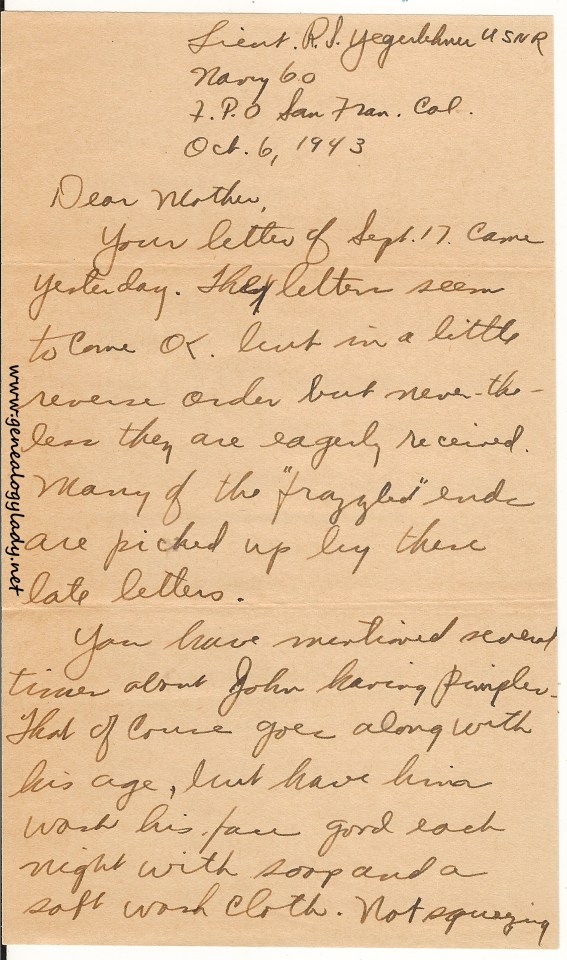 Lieut. R.S. Yegerlehner USNR
Navy 60
F.P.O San Fran. Cal.
Oct. 6, 1943
Dear Mother,
Your letter of Sept. 17. Came
yesterday. They letters seem
to come OK. but in a little
reverse order but never-the-
less they are eagerly received.
Many of the "frazzled" ends
are picked up by these
late letters.
You have mentioned several
times about John having pimples.
That of course goes along with
his age, but have him
wash his face good each
night with soap and a
soft wash cloth. Not squeezing
www.genealogylady.net